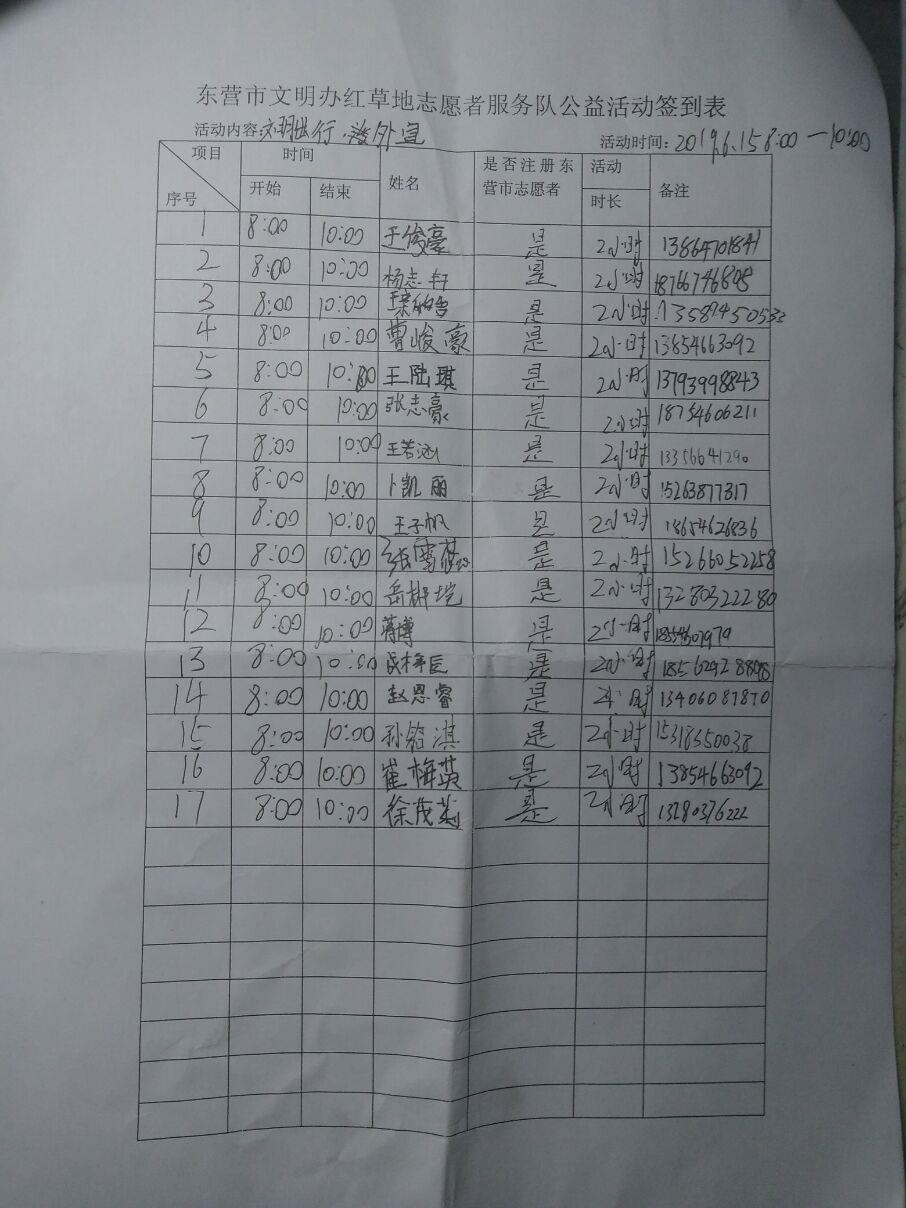 东营市文明办红草地志愿者服务队公益活动签到表
活动内容:文明出行 活动时间:2019.6.15 8:00—10:00
项目 时间 姓名 是否注册东营市志愿者 活动时长 备注
序号 开始 结束
1 8:00 10:00 王俊豪 是 2小时 13864701841
2 8:00 10:00 杨志轩 是 2小时 18766746898
3 8:00 10:00 是 2小时
4 8:00 10:00 曹峻豪 是 2小时 13854663092
5 8:00 10:00 王陆琪 是 2小时 13793998843
6 8:00 10:00 张志豪 是 2小时 18754606211
7 8:00 10:00 王若涵 是 2小时 13356641290
8 8:00 10:00 卜凯丽 是 2小时 15263877317
9 8:00 10:00 王子帆 是 2小时 18654626836
10 8:00 10:00 是 2小时 15266052258
11 8:00 10:00 是 2小时 13280322280
12 8:00 10:00 蒋博 是 2小时
13 8:00 10:00 是 2小时
14 8:00 10:00 赵恩睿 是 2小时 13406087870
15 8:00 10:00 孙铭淇 是 2小时 15318550038
16 8:00 10:00 崔梅英 是 2小时 13854663092
17 8:00 10:00 是 2小时 13280376222